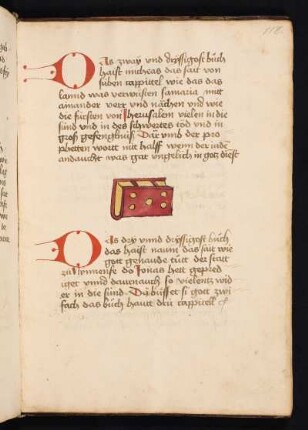 Das zway und dryssigost bůch
haist micheas das sait von
suben cappittel wie das das
lannd was verwůsten samaria mitt
ainander verr und nächen und wie
die fürsten von Jherusalem vielen in die
sünd und in des schwertes tod und in
gross gefengknuss Dar umb der pro
phetten wortt mit halff wenn der
andaucht was gar in gott
Das dry unnd dryssigest bůch
das haist naum das sait wie
gott genaude tätt der statt
zů do Jonas hett gepred
iget unnd darnauch so vielentz wid
er in die sünd Da bůsset si gott zwi
fach das bůch hautt dru cappittell